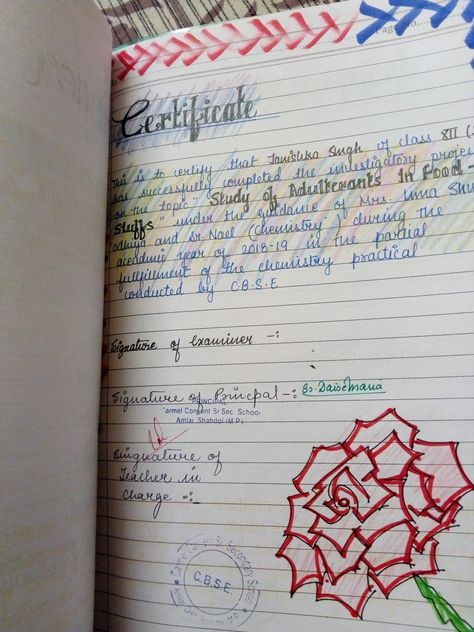 Page No.
Certificate
This is to certify that Tanishka Singh of class XII (
has successfully completed the investigatory projec
on the topic "Study of Adulterants In Food-
Stuffs" under the guidance of Mrs. Uma Sh
and sr. Noel (Chemistry) during the
academic year of 2018-19 in the partial
fullfillment of the chemistry practical
conducted by C.B.S.E
Signature of examiner -:
Signature of Principal -: Sr. Daise Maria
PRINCIPAL
Carmel Convent Sr Sec. School
Amlai, Shahdol (M.P.)
Singnature of
Teacher in
charge -:
C.B.S.E.